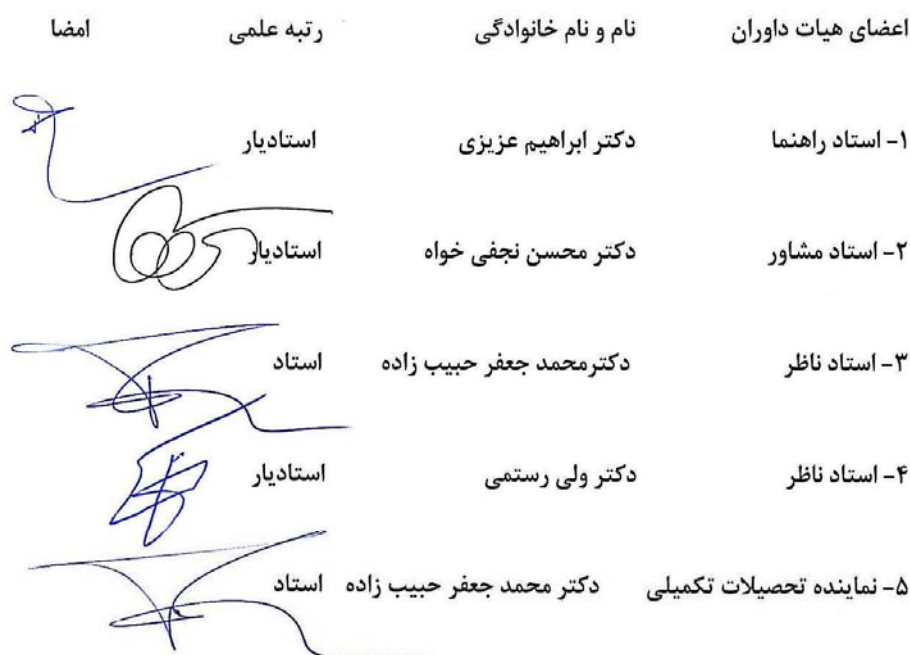 اعضای هیات داوران نام و نام خانوادگی رتبه علمی امضا
۱- استاد راهنما دکتر ابراهیم عزیزی استادیار
۲- استاد مشاور دکتر محسن نجفی خواه استادیار
۳- استاد ناظر دکترمحمد جعفر حبیب زاده استاد
۴- استاد ناظر دکتر ولی رستمی استادیار
۵- نماینده تحصیلات تکمیلی دکتر محمد جعفر حبیب زاده استاد